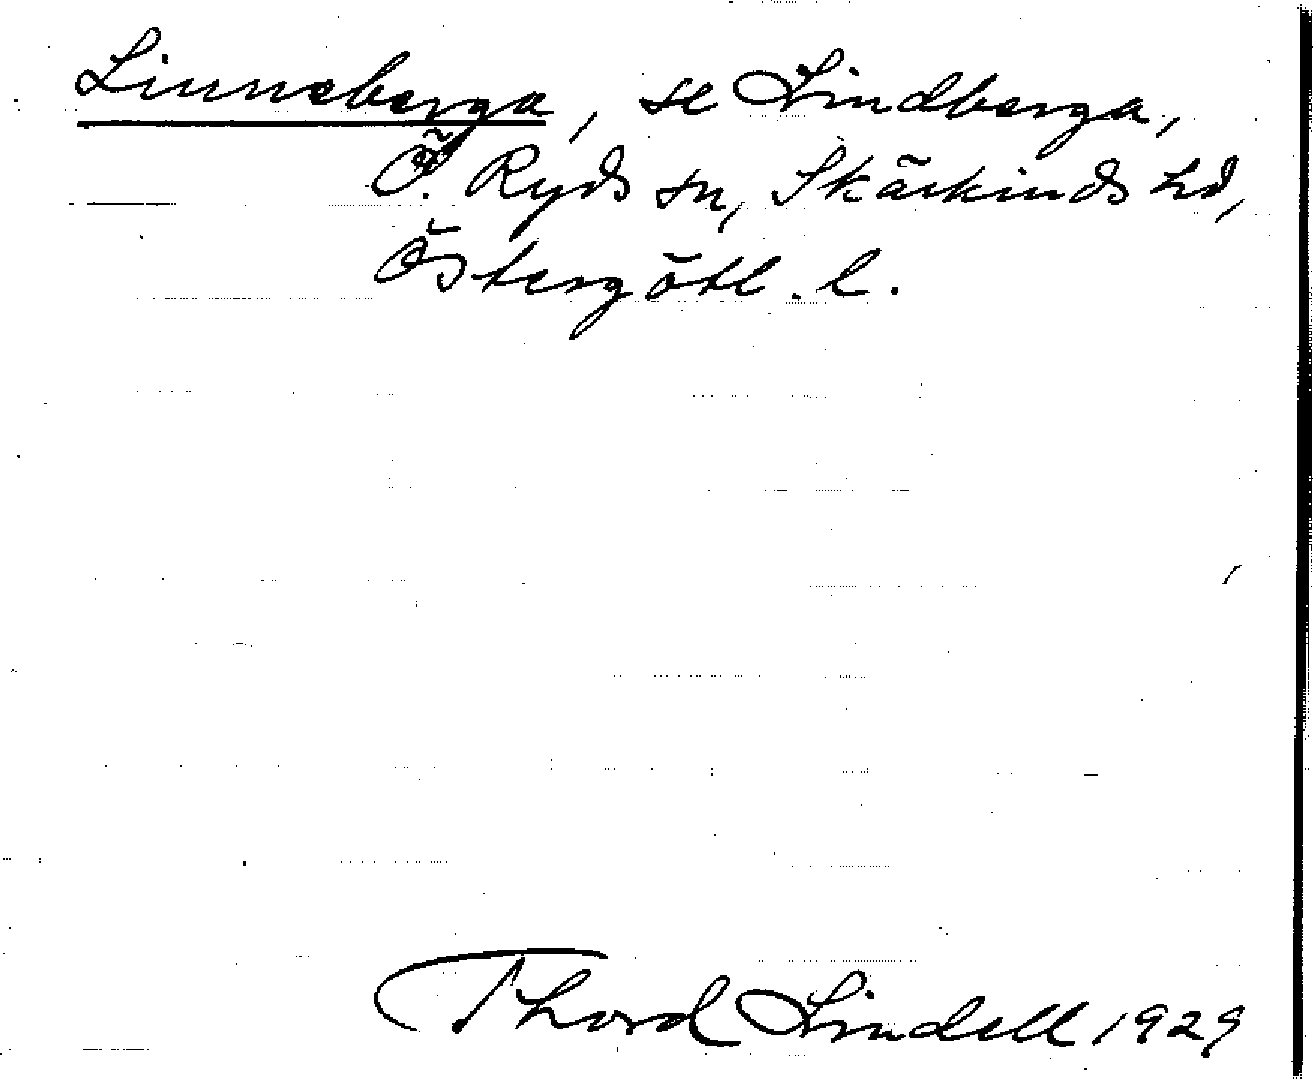 Linneberga, se Lindberga,
Ö. Ryds sn, Skärkinds hd,
Östergötl. l.
Thord Lindell 1929